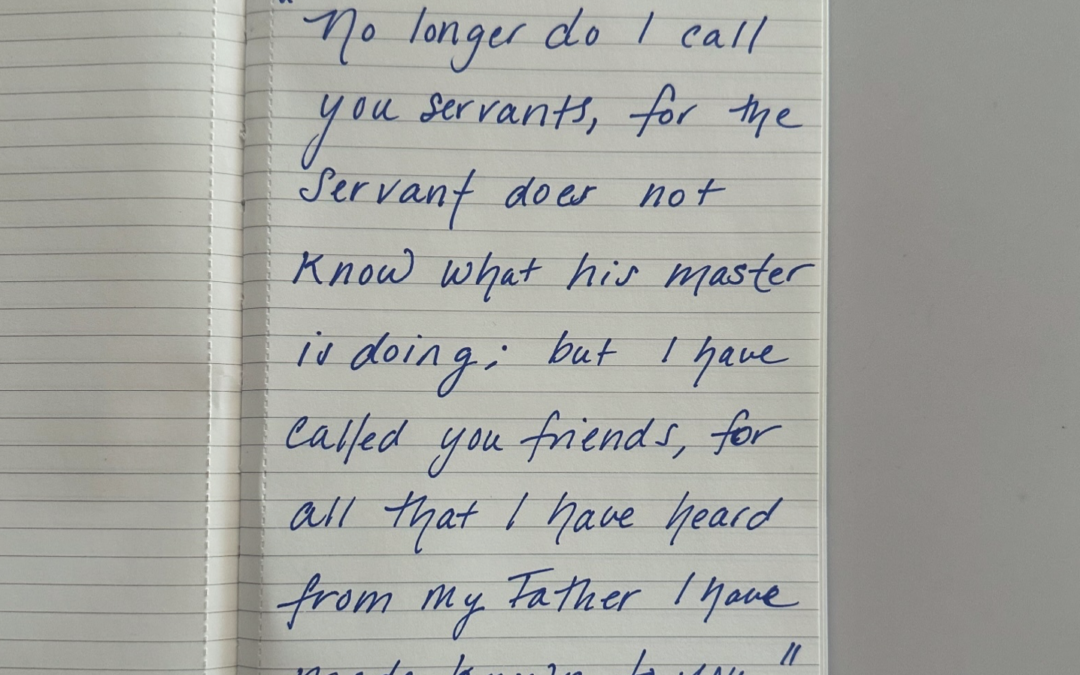 "No longer do I call
you servants, for the
servant does not
know what his master
is doing; but I have
called you friends, for
all that I have heard
from my Father I have
made known to you."